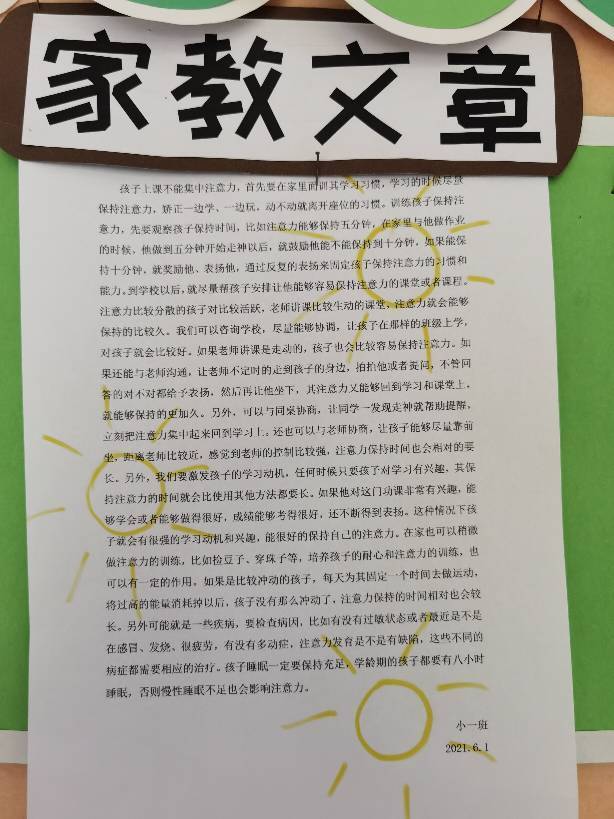 家教文章
孩子上课不能集中注意力，首先要在家里面训其学习习惯，学习的时候尽量
保持注意力，矫正一边学、一边玩，动不动就离开座位的习惯。训练孩子保持注
意力，先要观察孩子保持时间，比如注意力能够保持五分钟，在家里与他做作业
的时候，他做到五分钟开始走神以后，就鼓励他能不能保持到十分钟，如果能保
持十分钟，就奖励他、表扬他，通过反复的表扬来固定孩子保持注意力的习惯和
能力。到学校以后，就尽量帮孩子安排让他能够容易保持注意力的课堂或者课程。
注意力比较分散的孩子对比较活跃，老师讲课比较生动的课堂，注意力就会能够
保持的比较久。我们可以咨询学校，尽量能够协调，让孩子在那样的班级上学，
对孩子就会比较好。如果老师讲课是走动的，孩子也会比较容易保持注意力。如
果还能与老师沟通，让老师不定时的走到孩子的身边，拍拍他或者提问，不管回
答的对不对都给予表扬，然后再让他坐下，其注意力又能够回到学习和课堂上，
就能够保持的更加久。另外，可以与同桌协商，让同学一发现走神就帮助提醒，
立刻把注意力集中起来回到学习上。还也可以与老师协商，让孩子能够尽量靠前
坐，距离老师比较近，感觉到老师的控制比较强，注意力保持时间也会相对的要
长。另外，我们要激发孩子的学习动机，任何时候只要孩子对学习有兴趣，其保
持注意力的时间就会比使用其他方法都要长。如果他对这门功课非常有兴趣，能
够学会或者能够做得很好，成绩能够考得很好，还不断得到表扬。这种情况下孩
子就会有很强的学习动机和兴趣，能很好的保持自己的注意力。在家也可以稍微
做注意力的训练，比如捡豆子、穿珠子等，培养孩子的耐心和注意力的训练，也
可以有一定的作用。如果是比较冲动的孩子，每天为其固定一个时间去做运动，
将过高的能量消耗掉以后，孩子没有那么冲动了，注意力保持的时间相对也会较
长。另外可能就是一些疾病，要检查病因，比如有没有过敏状态或者最近是不是
在感冒、发烧、很疲劳，有没有多动症，注意力发育是不是有缺陷，这些不同的
病症都需要相应的治疗。孩子睡眠一定要保持充足，学龄期的孩子都要有八小时
睡眠，否则慢性睡眠不足也会影响注意力。
小一班
2021.6.1